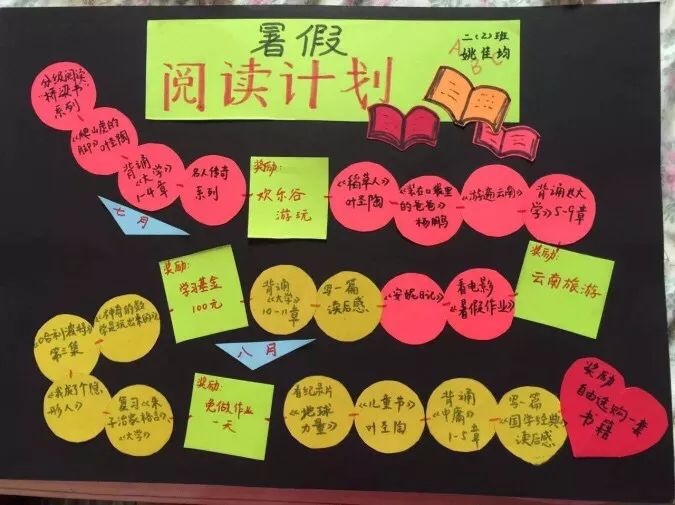 暑假
阅读计划
二(2)班
姚佳均
A
B
C
分级阅读
"桥梁书"
系列
《爬山虎的
脚》叶圣陶
背诵
《大学》
1-4章
名人传奇
系列
七月
奖励:
欢乐谷
游玩
《稻草人》
叶圣陶
《装在口袋里
的爸爸》
杨鹏
《游遍云南》
背诵《大
学》5-9章
奖励:
云南旅游
看电影
《暑假作业》
《安妮日记》
写一篇
读后感
背诵
《大学》
10-11章
奖励:
学习基金
100元
八月
《神奇的数
学是玩出来的》
《哈利波特》
第三集
《我成了个隐
形人》
复习《朱
子治家格言》
《大学》
奖励:
免做作业
一天
看纪录片
《地球
力量》
《儿童节》
叶圣陶
背诵
《中庸》
1-5章
写一篇
《国学经典》
读后感
奖励
自由选购一套
书籍